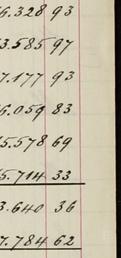 6.328 93
3.585 97
7.177 93
6.059 83
5.578 69
5.714 33
3.640 36
7.784 62